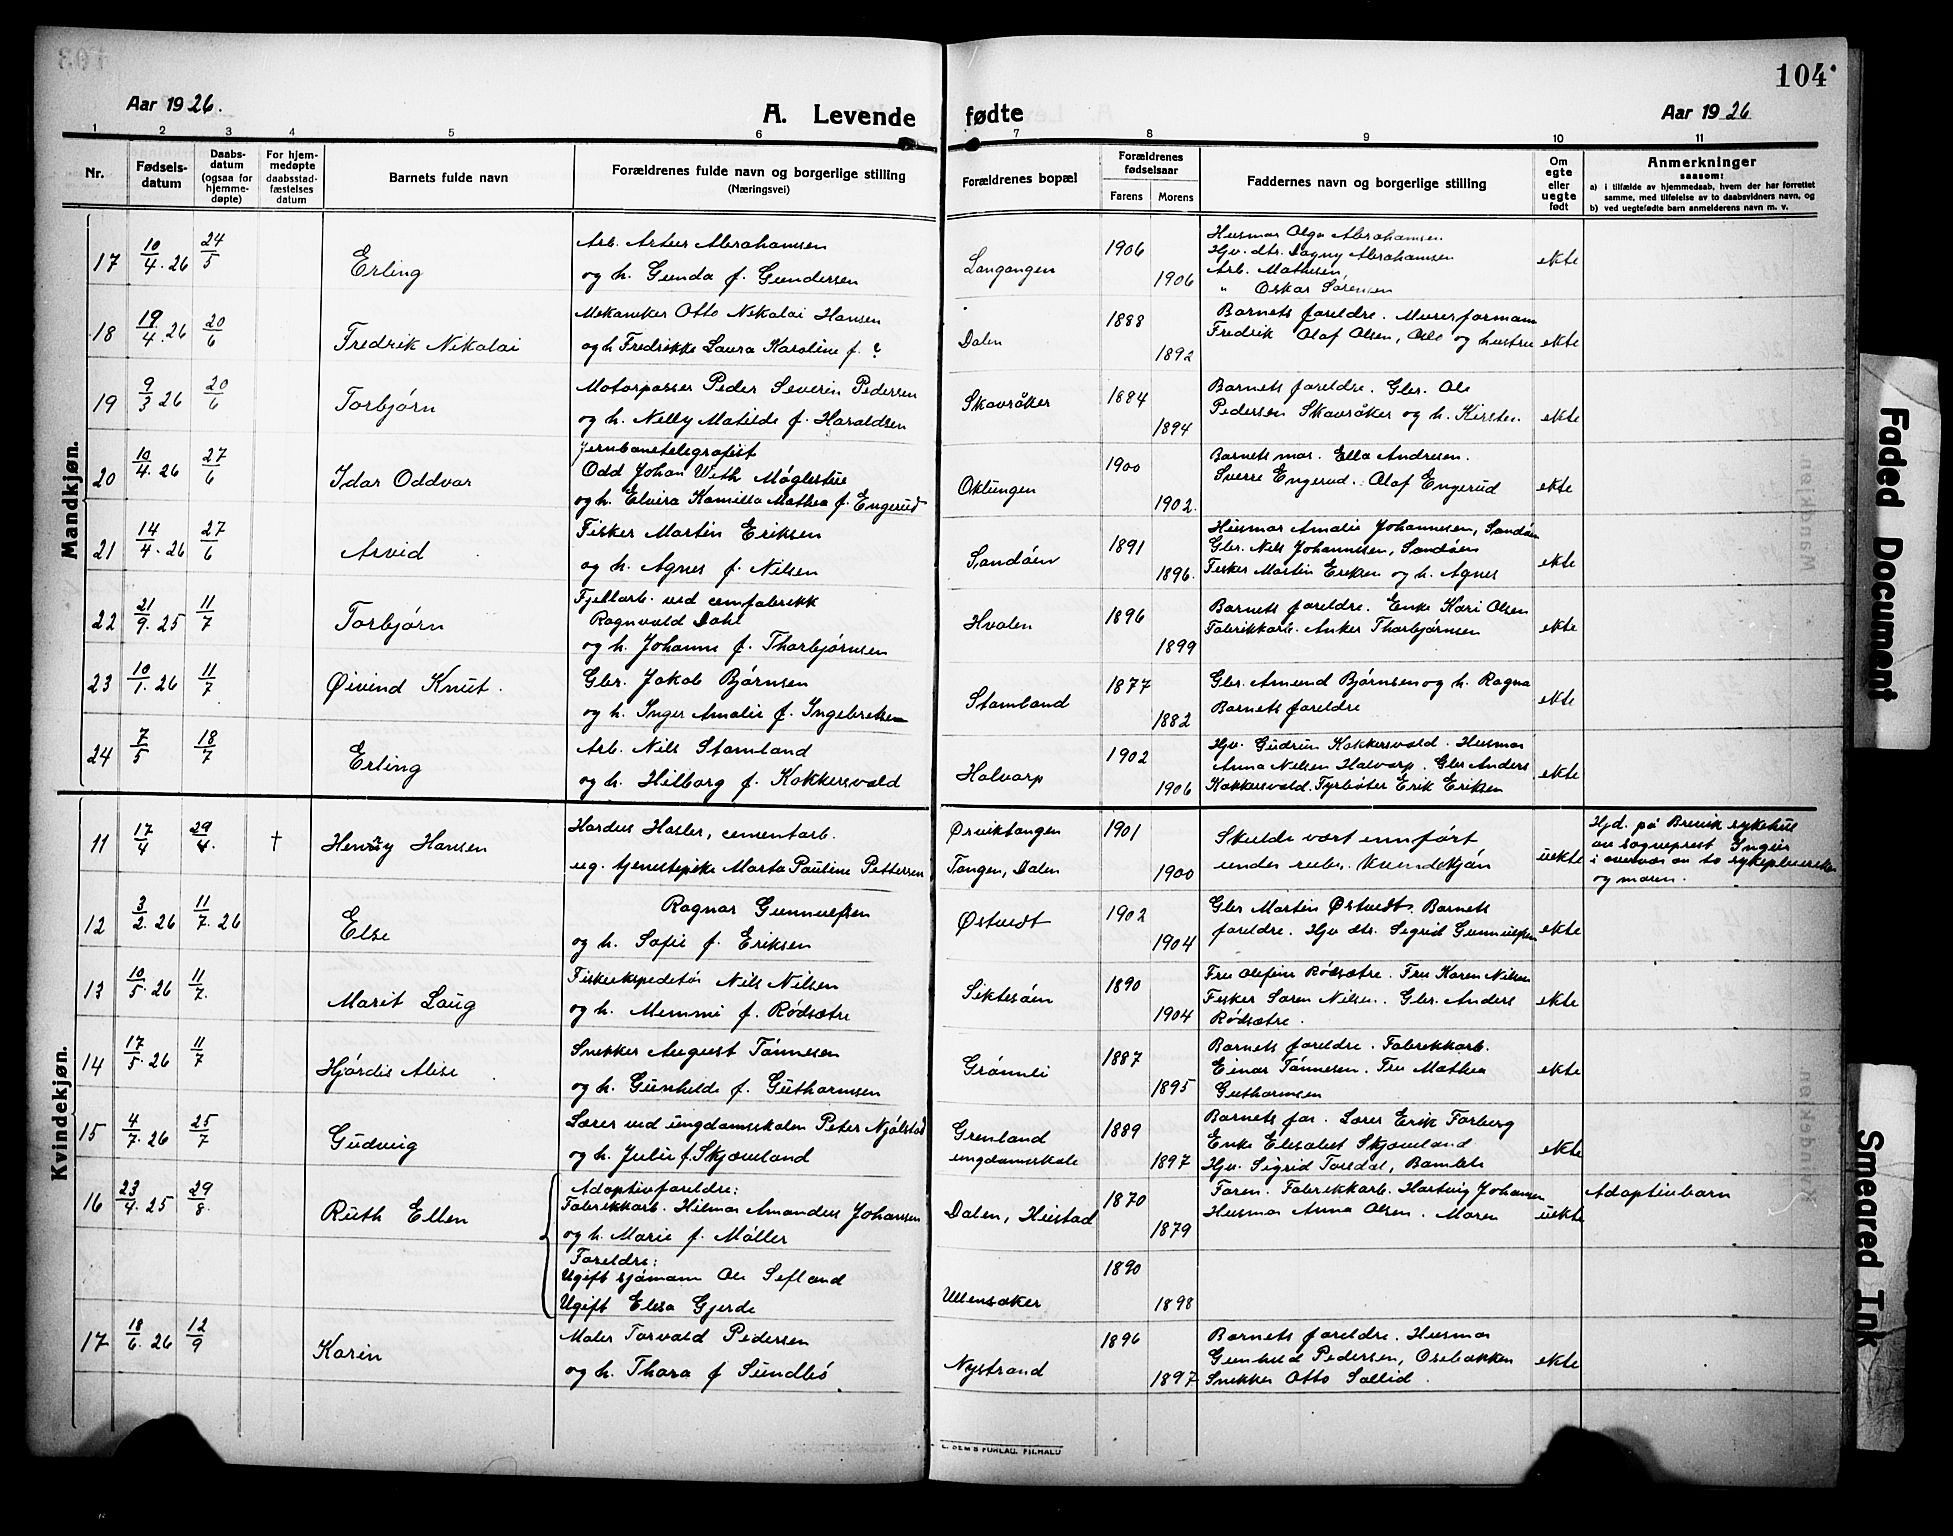 104
Aar 1926.
A. Levende fødte
Aar 1926
1 2 3 4 5 6 7 8 9 10 11
Nr.
Fødselsdatum
Daabsdatum (ogsaa for hjemmedøpte)
For hjemmedøpte daabsstadfæstelses datum
Barnets fulde navn
Forældrenes fulde navn og borgerlige stilling
(Næringsvei)
Forældrenes bopæl
Forældrenes fødselsaar
Farens Morens
Faddernes navn og borgerlige stilling
Om egte eller uegte født
Anmerkninger
saasom:
a) i tilfælde av hjemmedaab, hvem der har forrettet
samme, med tilføielse av to daabsvidners navn, og
b) ved uegtefødte barn anmelderens navn m. v.
Mandkjøn.
17 10/4.26 24/5 Erling
Arb. Artur Abrahamsen
og h. Gunda f. Gundersen
Langangen 1906 1906
Husmor Olga Abrahamsen
Hjv. dtr. Dagny Abrahamsen
Arb. Mathisen,
" Oskar Sørensen
ekte
18 19/4.26 20/6 Fredrik Nikolai
Mekaniker Otto Nikolai Hansen
og h Fredrikke Laura Karoline f. ?
Dalen 1888 1892
Barnets foreldre. Murerformann
Fredrik Olaf Olsen, Oslo og hustru
ekte
19 9/3 26 20/6 Torbjørn
Motorpasser Peder Severin Pedersen
og h. Nelly Matilde f. Haraldsen
Skavråker 1884 1894
Barnets foreldre. Gbr. Ole
Pedersen Skavråker og h. Kirsten.
ekte
20 10/4.26 27/6 Idar Oddvar
Jernbanetelegrafist
Odd Johan Weth Møglestue
og h. Elvira Kamilla Mathea f. Engerud
Oklungen 1900 1902.
Barnets mor. Ella Andresen.
Sverre Engerud. Olaf Engerud
ekte
21 14/4.26 27/6 Arvid
Fisker Martin Eriksen
og h. Agnes f. Nilsen
Sandøen 1891 1896.
Husmor Amalie Johannesen, Sandøen
Gbr. Nils Johannesen, Sandøen
Fisker Martin Eriksen og h. Agnes
ekte
22 21/9.25 11/7 Torbjørn
Fjellarb. ved cemfabrikk
Ragnvald Dahl
og h. Johanne f. Thorbjørnsen
Hvalen 1896 1899
Barnets foreldre. Enke Kari Olsen
Fabrikkarb. Anker Thorbjørnsen
ekte
23 10/1.26 11/7 Øivind Knut.
Gbr. Jakob Bjørnsen
og h. Inger Amalie f. Ingebretsen
Stamland 1877 1882
Gbr. Amund Bjørnsen og h. Ragna
Barnets foreldre
ekte
24 7/5 18/7 Erling
Arb. Nils Stamland
og h. Hilborg f. Kokkersvold
Halvarp 1902 1906
Hjv. Gudrun Kokkersvold. Husmor
Anna Nilsen Halvarp. Gbr Anders
Kokkersvold. Fyrbøter Erik Eriksen
ekte
Kvindekjøn.
11 17/4 29/4. † Henry Hansen
Hardus Hasler, cementarb.
ug. tjenestepike Marta Pauline Pettersen
Ørviktangen
Tangen, Dalen 1901 1900
Skulde vært innført
under rubr. Kvindekjøn
uekte
Hjd. på Brevik sykehus
av sogneprest
i overvær av to sykepleiersker
og moren.
12 3/2.26 11/7.26 Else
Ragnar Gunnulfsen
og h. Sofie f. Eriksen
Østvedt 1902 1904
Gbr Martin Østvedt. Barnets
foreldre. Hjv dtr. Sigrid Gunnulfsen
ekte
13 10/5.26 11/7. Marit Laug
Fiskeekspeditør Nils Nilsen
og h. Memmi f. Rødsætre
Siktesøen 1890 1904
Fru Olefine Rødsætre. Fru Karen Nilsen
Fisker Søren Nilsen. Gbr. Anders
Rødsætre.
ekte
14 17/5.26 11/7 Hjørdis Alise
Snekker August Tønnesen
og h. Gunhilde f. Guthormsen
Grømli 1887 1895
Barnets foreldre. Fabrikkarb.
Einar Tønnesen. Fru Mathea
Guthormsen
ekte
15 4/7.26 25/7 Gudveig
Lærer ved ungdomsskolen Peter Njålstad
og h. Julie f. Skjæveland
Grenland
ungdomsskole 1889 1897
Barnets far. Lærer Erik Forberg
Enke Elisabet Skjæveland
Hjv. Sigrid Toredal, Bamble
ekte
16 23/4.25 29/8. Ruth Ellen
Adoptivforeldre:
Fabrikkarb. Hilmar Amandus Johansen
og h. Marie f. Møller
Foreldre:
Ugift sjømann Ole Sefland
Ugift Elisa Gjerde
Dalen, Heistad 1870 1879
Ullensaker 1890 1898
Faren. Fabrikkarb. Hartvig Johansen
Husmor Anna Olsen. Moren
uekte
Adoptivbarn
17 18/6.26 12/9 Karin
Maler Torvald Pedersen
og h. Thora f Sundbø
Nystrand 1896 1897
Barnets foreldre. Husmor
Gunhild Pedersen, Osebakken
Snekker Otto Sollid.
ekte
Faded Document
Smeared Ink